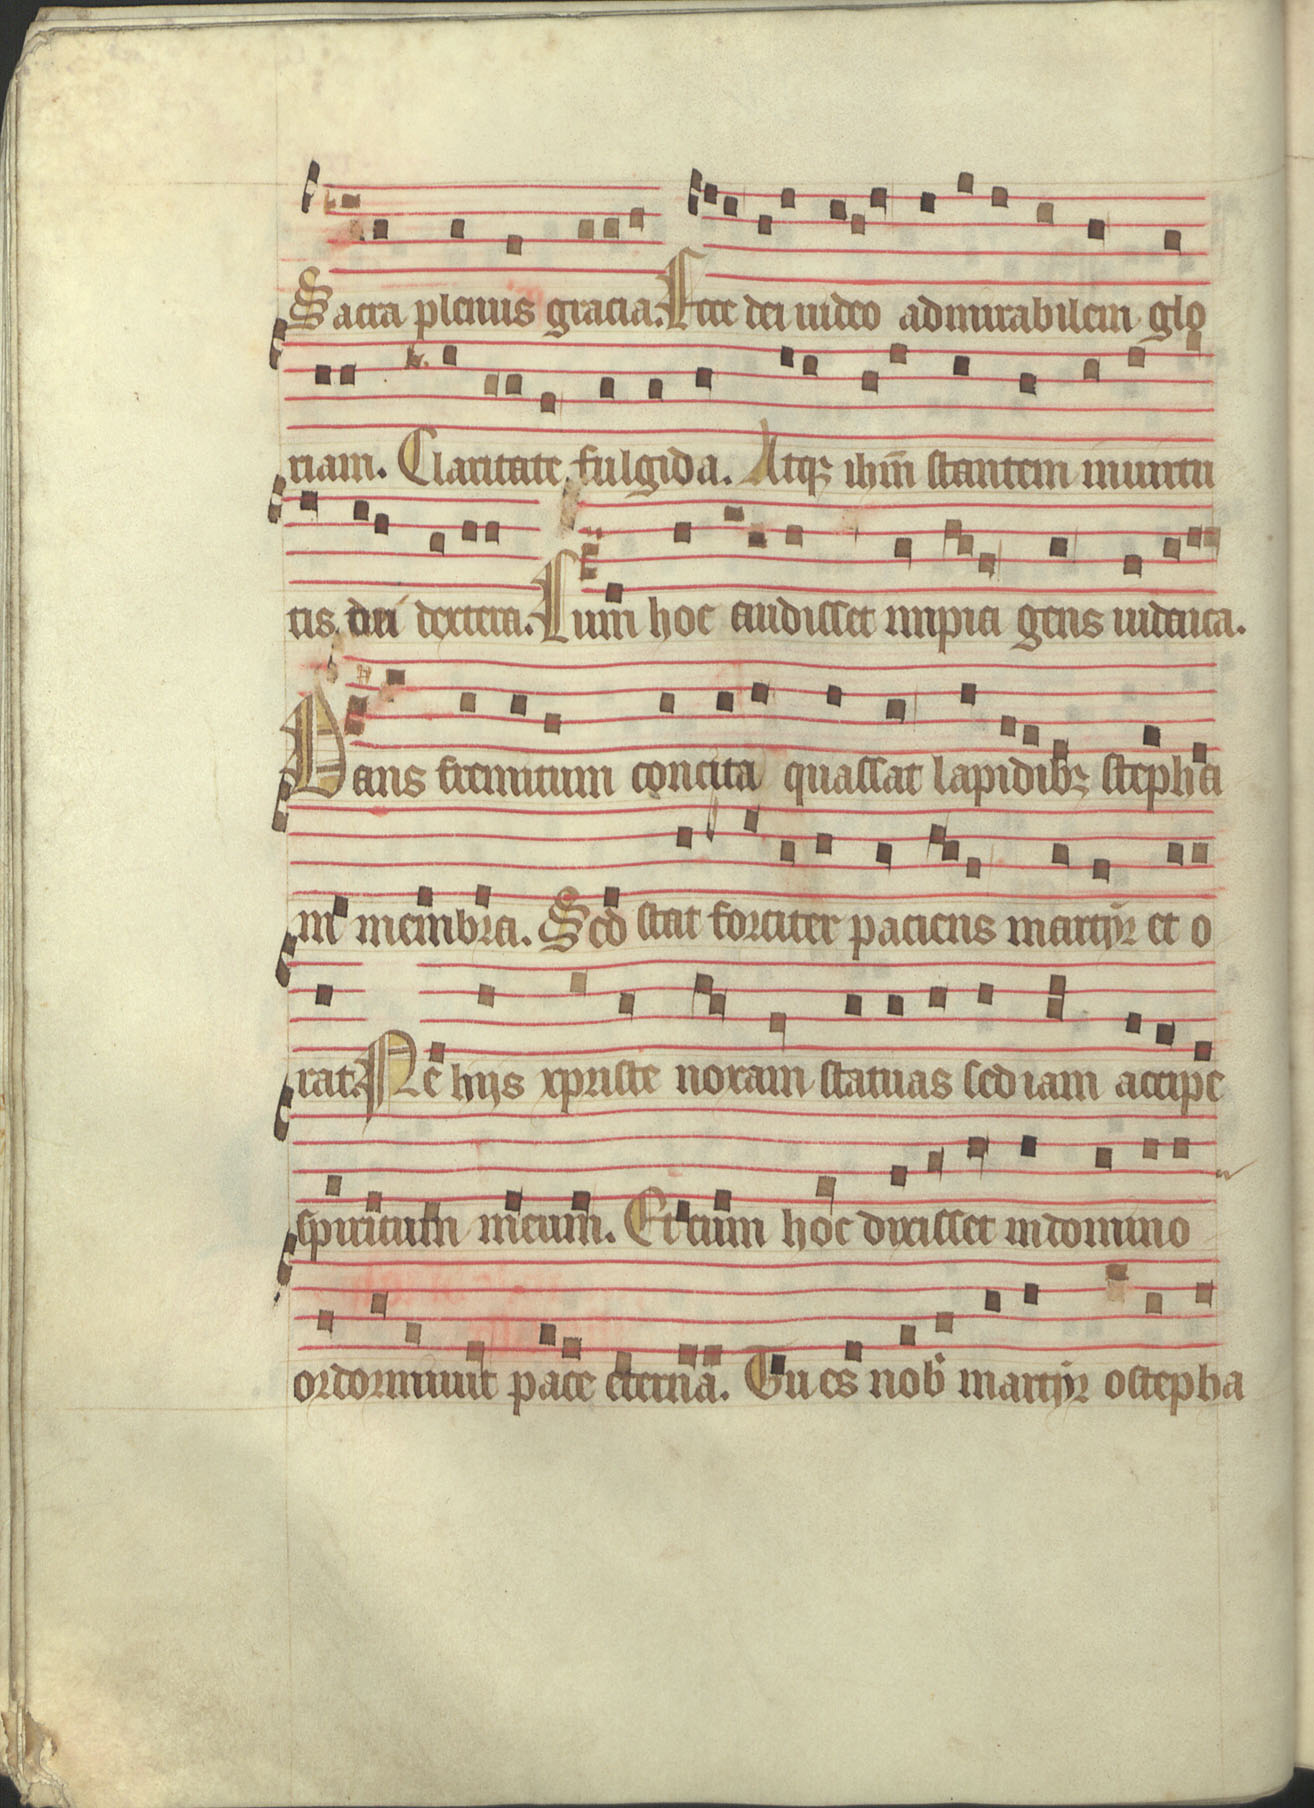 Sacra plenus gracia. Ecce dei uideo admirabilem glo
riam. Claritate fulgida. Atqꝫ ihm̄ stantem in uirtu
tis dei dextera. Cum hoc audisset impia gens iudaica.
Dans fremitum concita quassat lapidibꝫ stepha
ni membra. Sed stat forciter paciens martyr et o
rat. Ne hijs xpriste noxam statuas sed iam accipe
spiritum meum. Et cum hoc dixisset in domino
obdormiuit pace eterna. Tu es nob̕ martyr o stepha